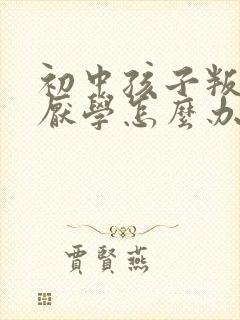 初中孩子叛
厭學怎麼办
賈賢燕